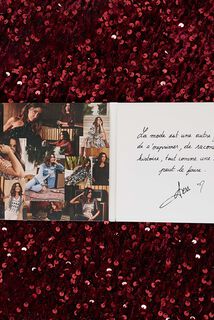 La mode est une autre
de s'exprimer, de racon
histoire, tout comme une
peut le faire.